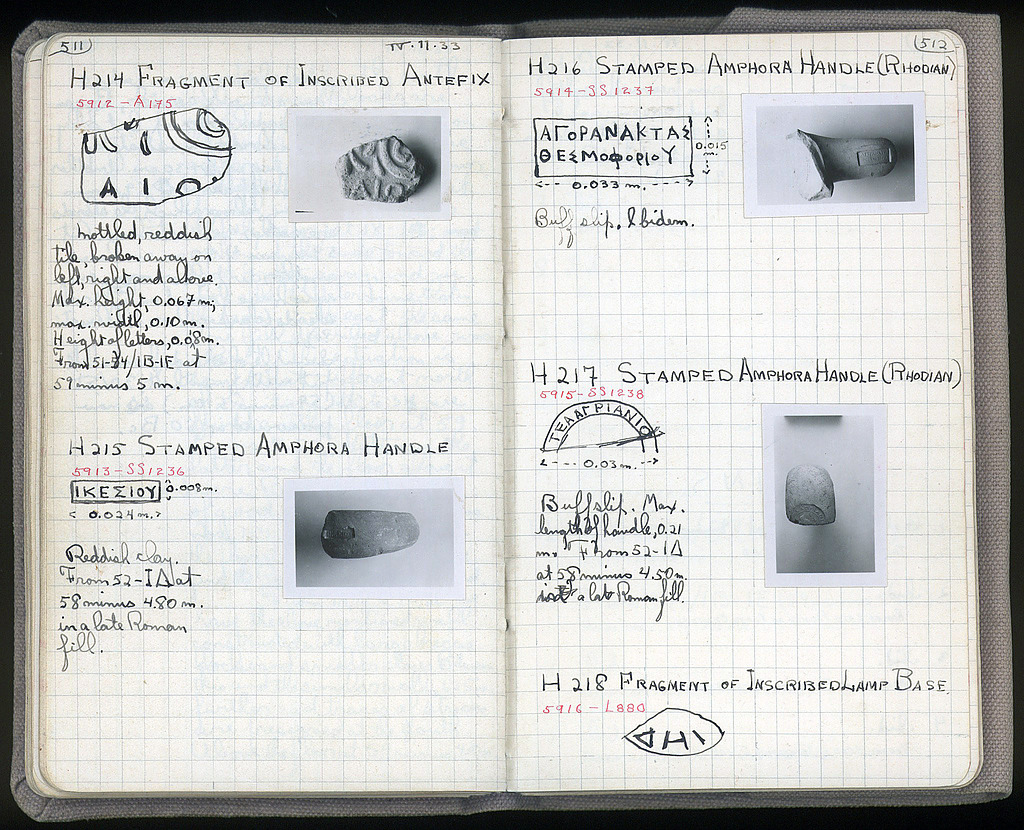 511
IV.11.33
H 214 FRAGMENT OF INSCRIBED ANTEFIX
5912-A175
Α Ι Ο
Mottled, reddish
tile, broken away on
left, right and above.
Max. height, 0.067 m;
max. width, 0.10 m.
Height of letters, 0.08m.
From 51-/IB-IE at
59 minus 5 m.
H 215 STAMPED AMPHORA HANDLE
5913-SS1236
ΙΚΕΣΙΟΥ
0.008m.
0.024 m.
Reddish clay.
From 52-ΙΔ at
58 minus 4.80 m.
in a late Roman
fill.
512
H 216 STAMPED AMPHORA HANDLE (RHODIAN)
5914-SS1237
ΑΓΟΡΑΝΑΚΤΑΣ
ΘΕΣΜΟΦΟΡΙΟΥ
0.015 m.
0.033 m.
Buff slip. Ibidem.
H 217 STAMPED AMPHORA HANDLE (RHODIAN)
5915-SS1238
0.03 m.
Buff slip. Max.
length of handle, 0.21
m. From 52-ΙΔ
at 58 minus 4.50 m.
a late Roman fill.
H 218 FRAGMENT OF INSCRIBED LAMP BASE
5916-L880
ΔΗΙ